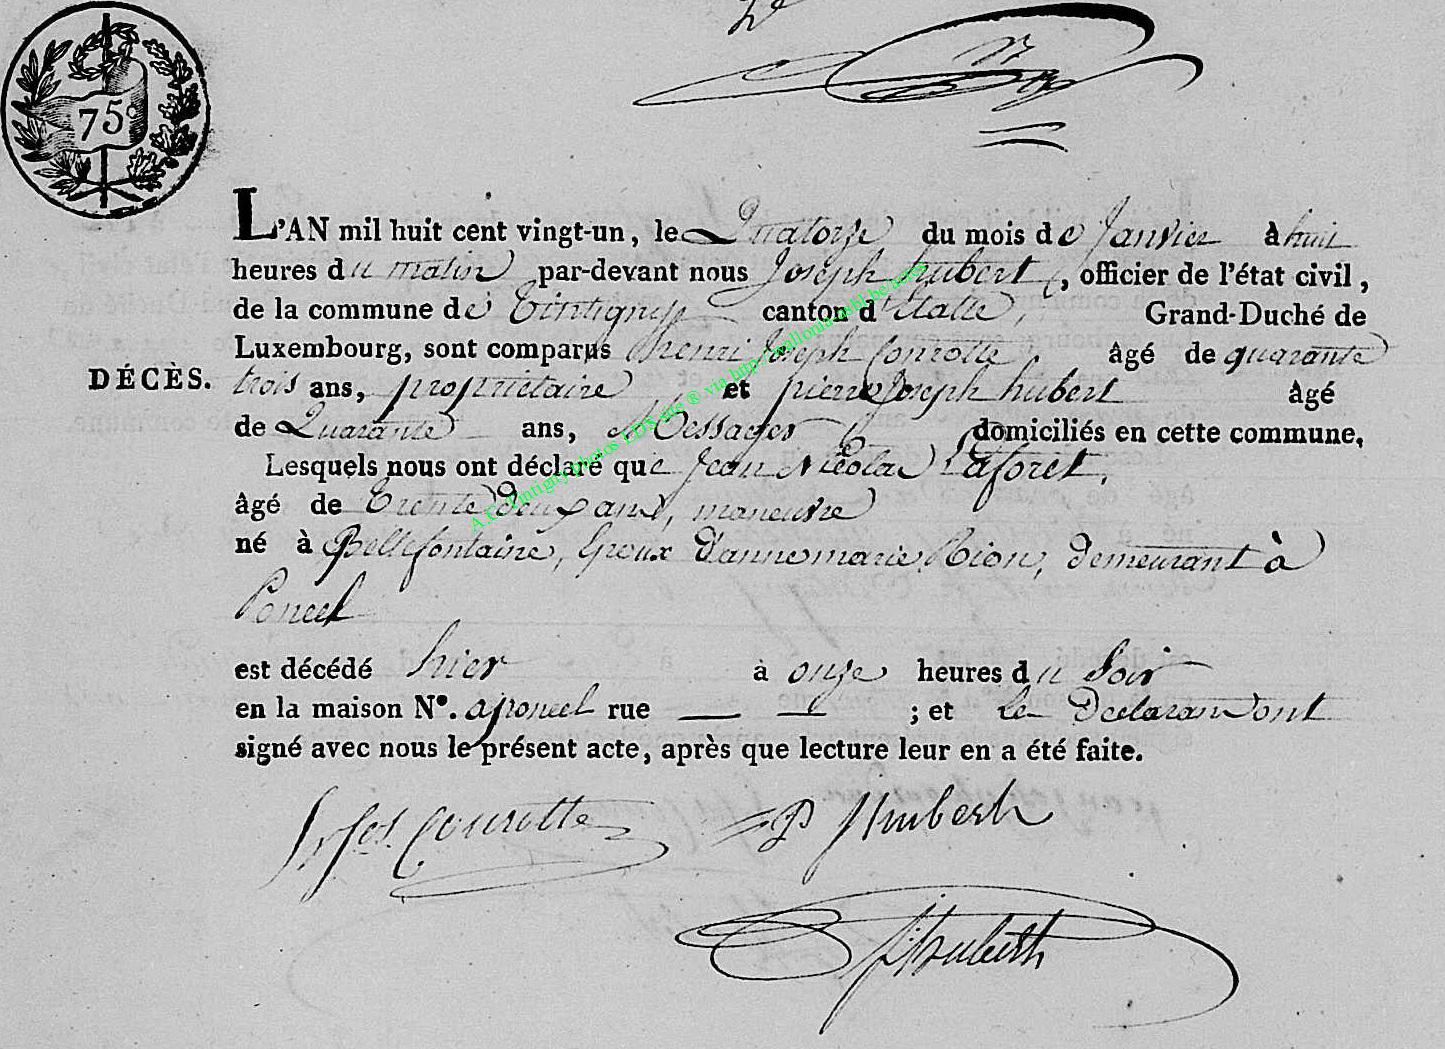 75c
L'AN mil huit cent vingt-un, le Quatorze du mois de Janvier à huit
heures du matin par-devant nous Joseph hubert, officier de l'état civil,
de la commune de Tintigny canton d'Etalle, Grand-Duché de
Luxembourg, sont comparus henri Joseph Conrotte âgé de quarante
DÉCÈS. trois ans, propriétaire et pierre Joseph hubert âgé
de Quarante ans, Messager domiciliés en cette commune,
Lesquels nous ont déclaré que Jean Nicolas Laforet,
âgé de trente deux ans, maneuvre
né à Bellefontaine, Epoux d'anne marie Rion, demeurant à
Poncel
est décédé hier à onze heures du Soir
en la maison N°. a poncel rue — — ; et les Declarans ont
signé avec nous le présent acte, après que lecture leur en a été faite.
Conrotte P J hubert
hubert
A.C. Tintigny photos EDS site ® via http://wallonia-asbl.be/actes